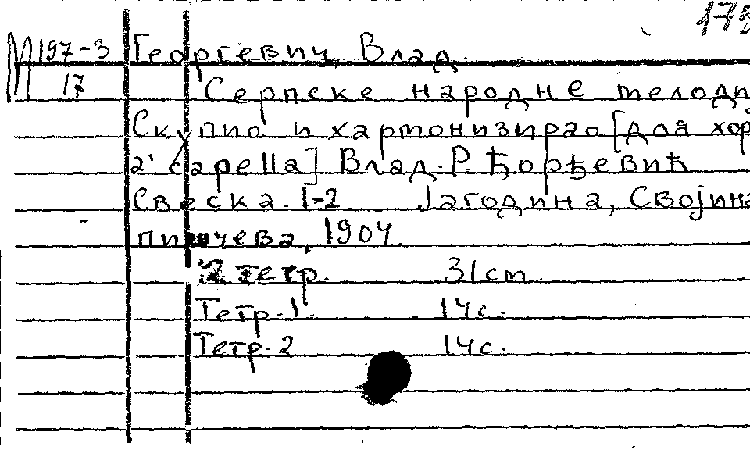 175
М 197-3 Георгевич, Влад.
17 Серпске народне мелоди
Скупио и хармонизирао [для хор
a' capella] Влад. Р. Ђорђевић
Свеска. 1-2 Јагодина, Својина
писчева, 1904.
2 тетр. 31cm
Тетр. 1. 14с.
Тетр. 2 14с.